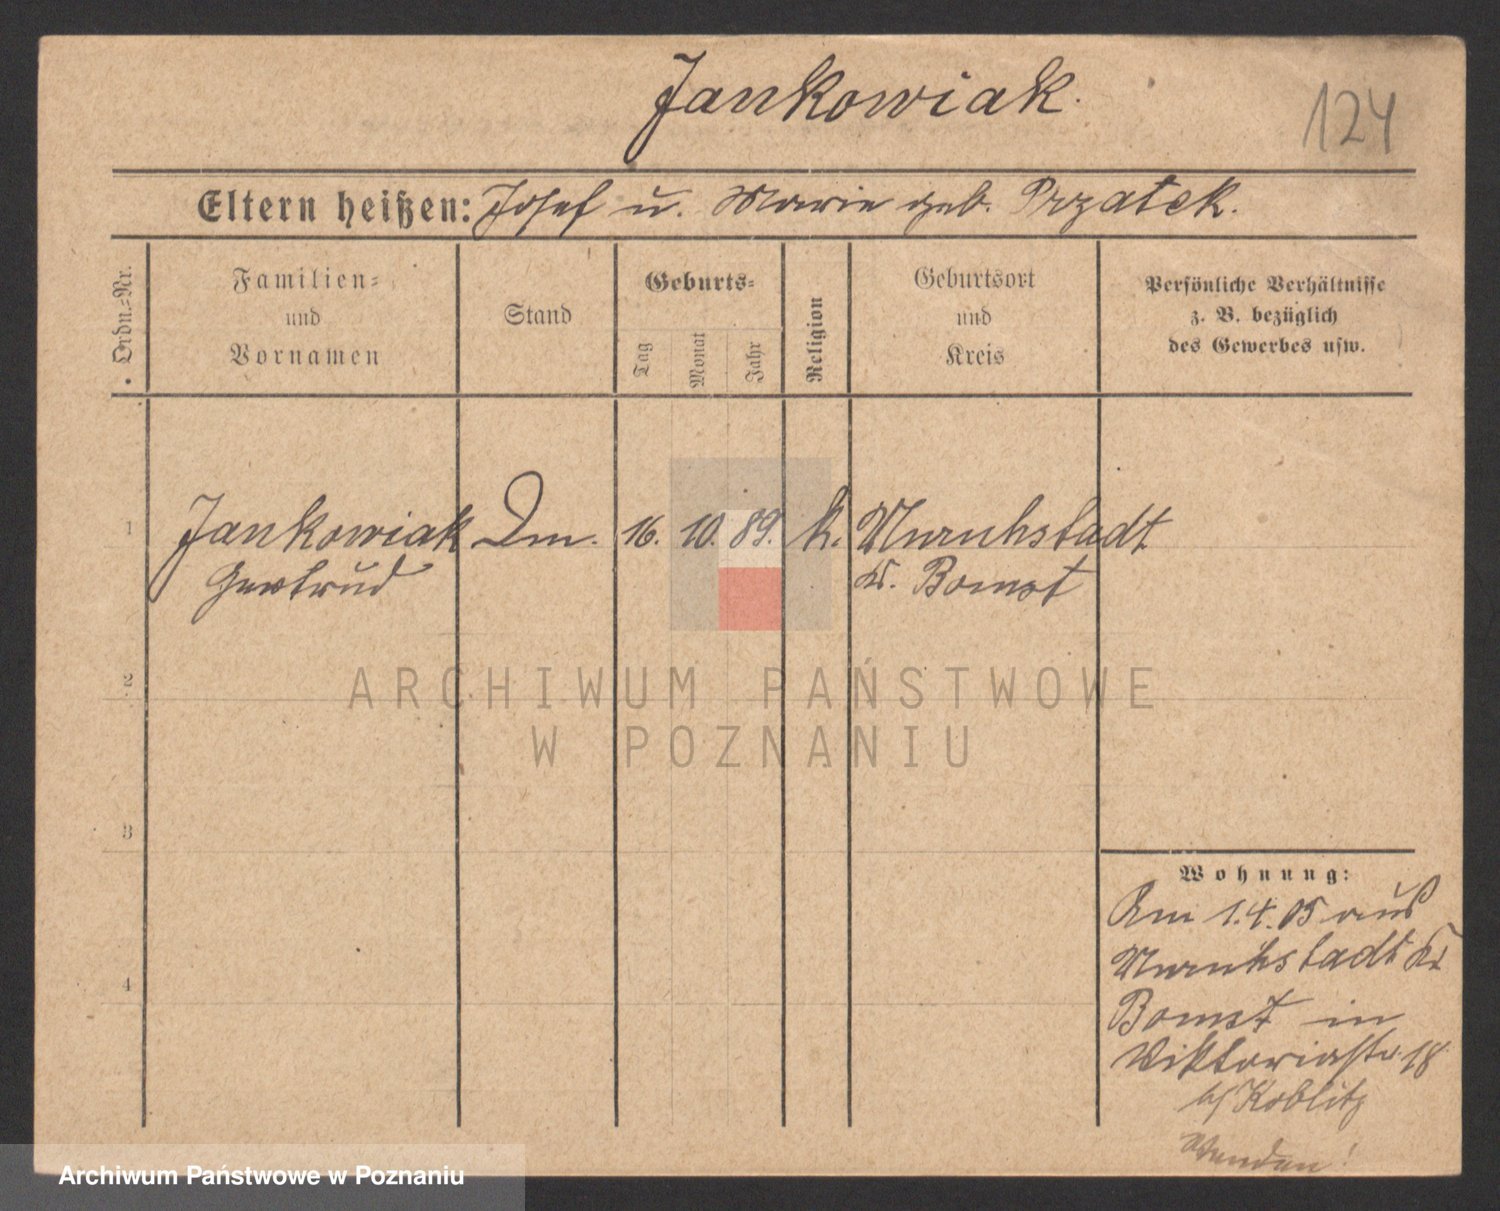 Jankowiak.
124
Eltern heißen: Josef u. Marie geb. Przatek.
Ordn.-Nr.
Familien-
und
Vornamen
Stand
Geburts-
Tag
Monat
Jahr
Religion
Geburtsort
und
Kreis
Persönliche Verhältnisse
z. B. bezüglich
des Gewerbes usw.
1 Jankowiak Dm. 16. 10. 89. k. Unruhstadt
Gertrud Kr. Bomst
2
ARCHIWUM PAŃSTWOWE
W POZNANIU
3
Wohnung:
Am 1.4.05 aus
Unruhstadt Kr
Bomst in
Viktoriastr. 18
b/ Koblitz
Wenden!
4
Archiwum Państwowe w Poznaniu